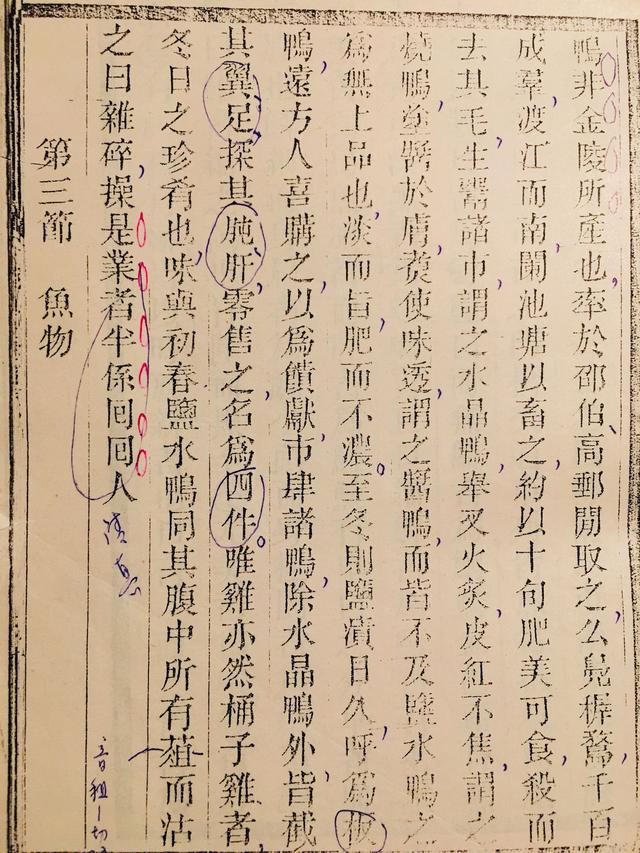 鴨非金陵所產也率於邵伯高郵間取之么鳧樨鶩千百
成羣渡江而南闌池塘以畜之約以十旬肥美可食殺而
去其毛生鬻諸市謂之水晶鴨舉叉火炙皮紅不焦謂之
燒鴨塗醬於膚煑使味透謂之醬鴨而皆不及鹽水鴨之
為無上品也淡而旨肥而不濃至冬則鹽漬日久呼為板
鴨遠方人喜購之以為饋獻市肆諸鴨除水晶鴨外皆截
其翼足探其肫肝零售之名為四件唯雞亦然桶子雞者
冬日之珍肴也味與初春鹽水鴨同其腹中所有菹而沽
之曰雜碎操是業者半係囘囘人
清真
音租
第三節 魚物